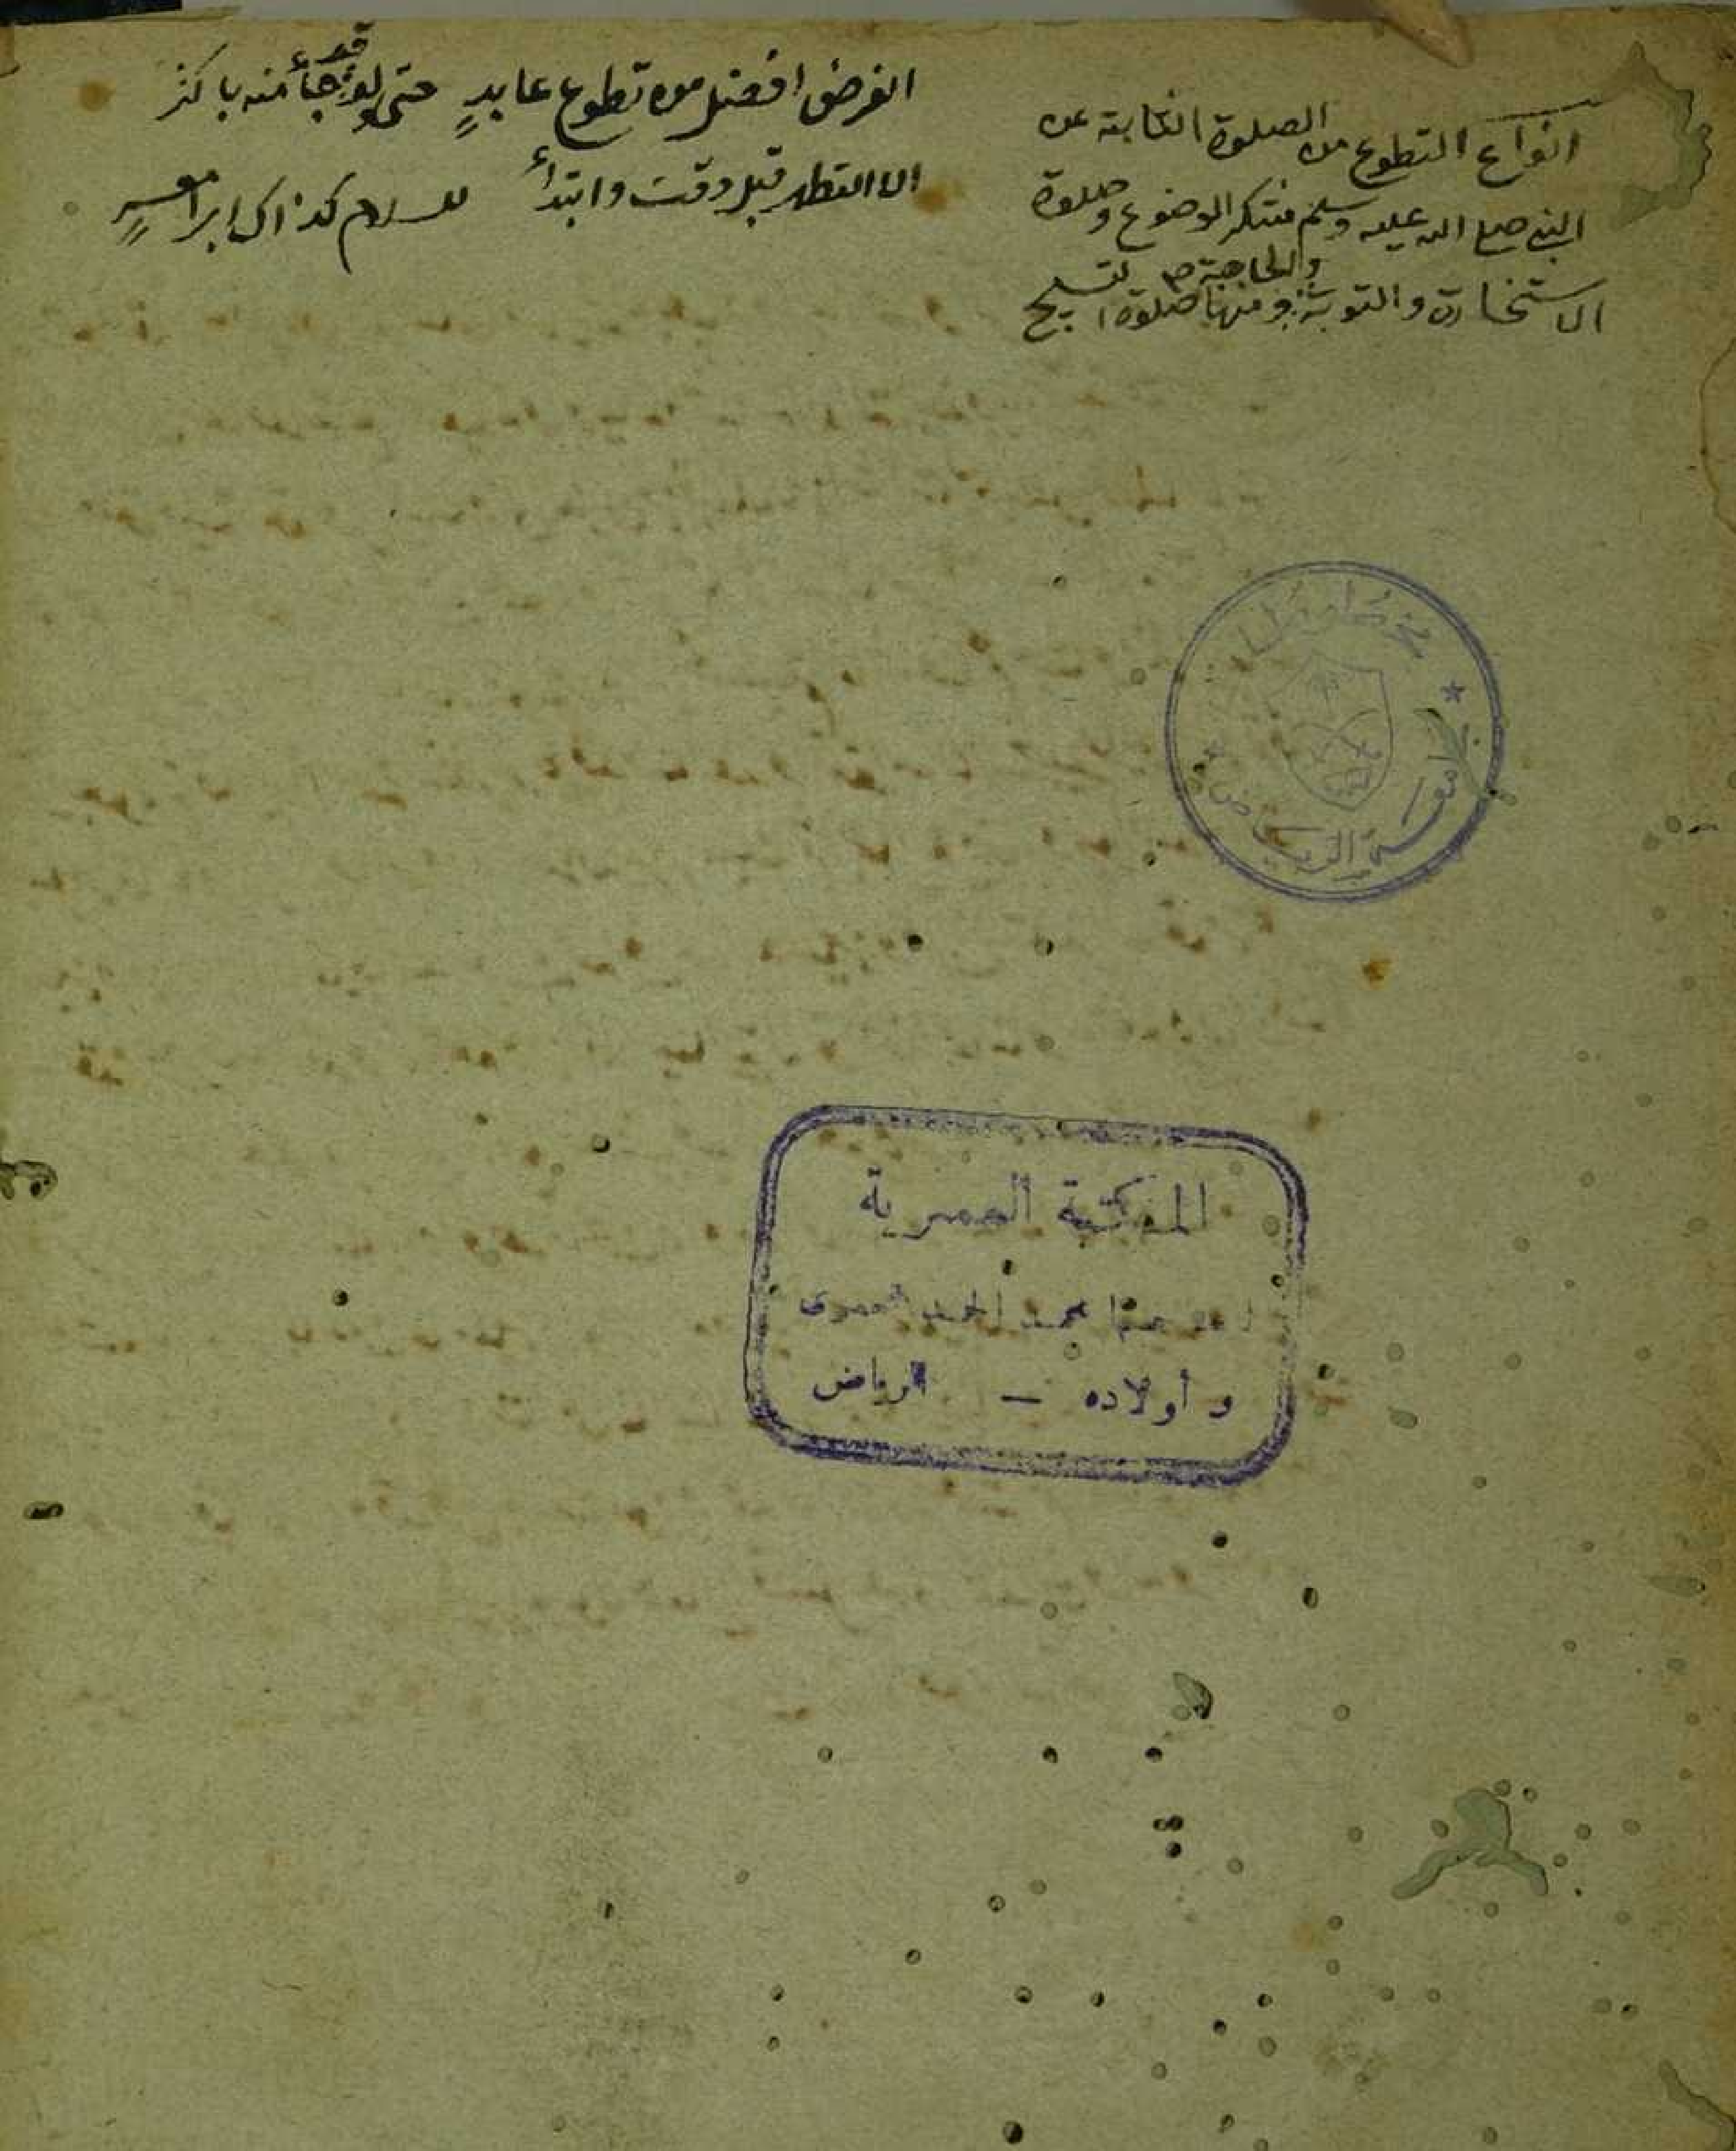 انواع التطوع من الصلوة الثابتة عن
النبي صلى الله عليه وسلم فتشكر الوضوء وصلوة
الاستخارة والتوبة والحاجة ومنها صلوة التسبيح
الفرض افضل من تطوع عابدٍ حتى ولو قد جاء منه باكثر
الا التطهر قبل وقت وابتداء للسلام كذاك ابرا معسرٍ
جامعة الرياض
المكتبة العمرية
محمد الحمد العمرى
و أولاده – الرياض